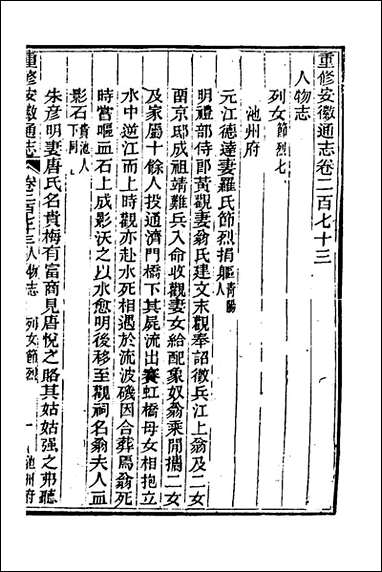 重修安徽通志卷二百七十三
人物志
列女節烈七
池州府
元江德達妻羅氏節烈捐軀青陽人
明禮部侍郎黃觀妻翁氏建文末觀奉詔徵兵江上翁及二女
畱京邸成祖靖難兵入命收觀妻女給配象奴翁乘閒攜二女
及家屬十餘人投通濟門橋下其屍流出賽虹橋母女相抱立
水中逆江而上時觀亦赴水死相遇於流波磯因合葬焉翁死
時嘔血石上成影沃之以水愈明後移至觀祠名翁夫人血
影石貴池人下同
朱彦明妻唐氏名貴梅有富商見唐悅之賂其姑姑强之弗聽
重修安徽通志 卷二百七十三人物志 列女節烈 一 池州府